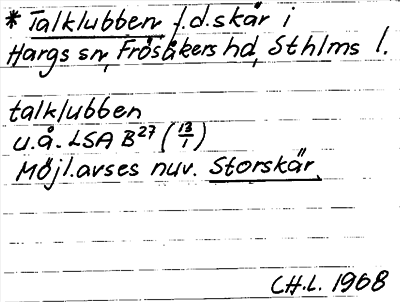 * Talklubben f.d. skär i
Hargs sn, Frösåkers hd, Sthlms l.
talklubben
u.å. LSA B27 (13/1)
Möjl. avses nuv. Storskär.
C.H.L. 1968